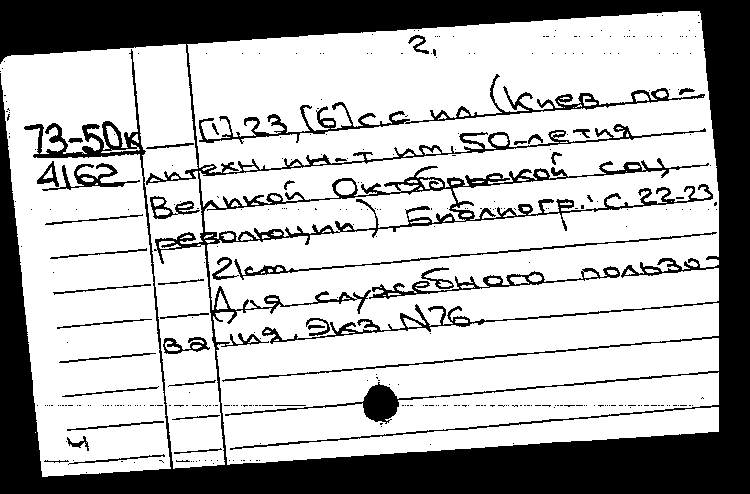 2.
73-50к [1],23,[6]с.с ил. (Киев. по-
4162 литехн. ин-т им. 50-летия
Великой Октябрьской соц.
революции). Библиогр.: с. 22-23.
21cm.
Для служебного пользо-
вания. Экз. N76.
ч